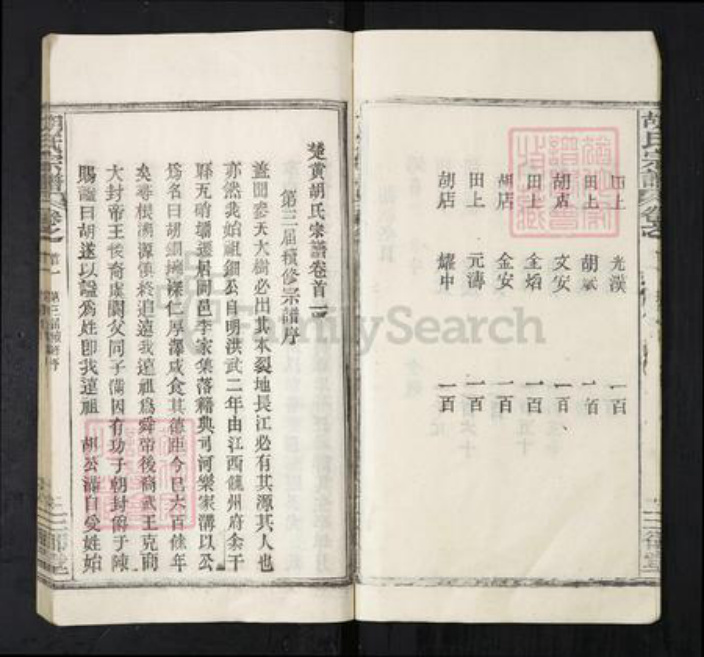 胡氏宗譜
田上 光漢 一百
田上 胡斌 一百
胡店 文安 一百
田上 全
胡店 金安 一百
田上 元濤 一百
胡店 耀中 一百
三
楚黃胡氏宗譜卷首一
第三屆續修宗譜序
蓋聞參天大樹必出其本裂地長江必有其源其人也
亦然我始祖細公自明洪武二年由江西饒州府餘干
縣瓦硝壩遷居岡邑李家集落籍典司河樂家溝以公
為名曰胡細 深仁厚澤咸食其德距今已六百餘年
矣尋根溯源慎終追遠我遠祖為舜帝後裔武王克商
大封帝王後裔虞閼父同子滿因有功于朝封爵于陳
賜謚曰胡遂以謚為姓即我遠祖 胡公滿自受姓始
胡氏宗譜 卷之 首一 第三屆續修序
三
FamilySearch